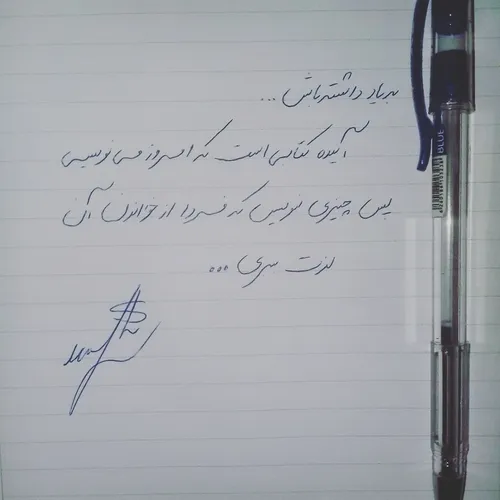 به یاد داشته باش ...
آینده کتابی است که امروز می نویسی
پس چیزی نویس که فردا از خواندن آن
لذت ببری ...
BLUE